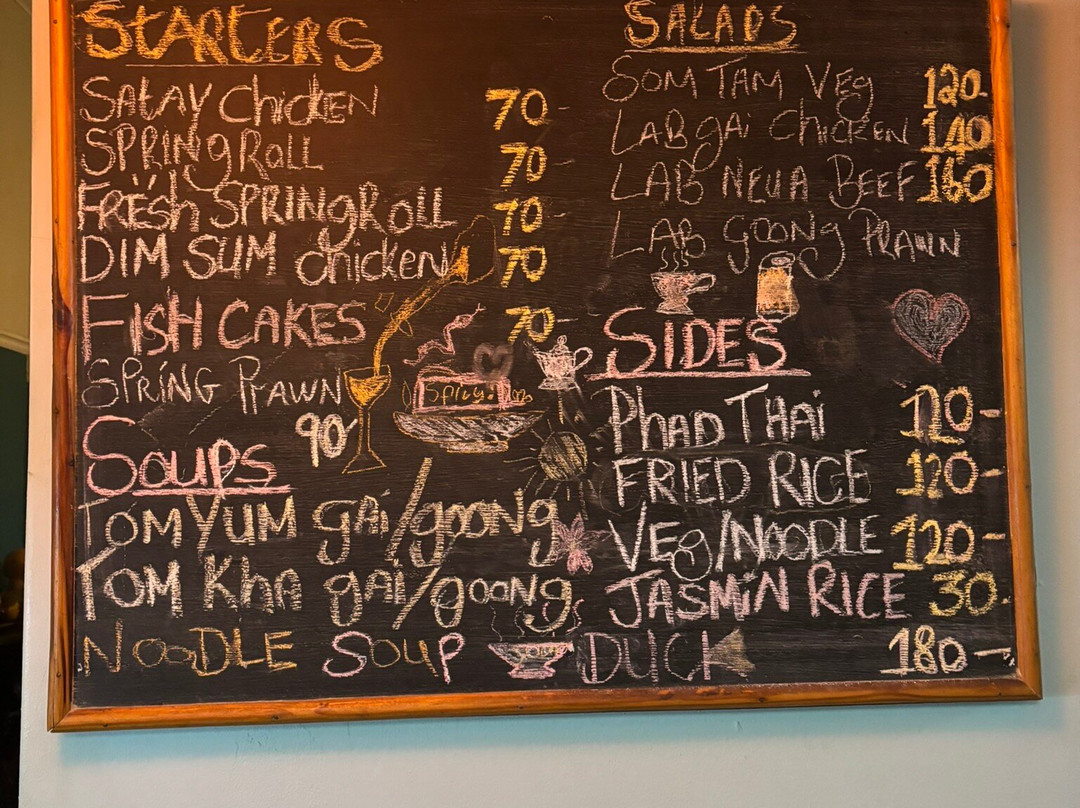 STARTERS
Satay Chicken 70-
SPRINgRoLL 70-
FRESh SPRINgRoLL 70-
DIM SUM chicken 70
FISH CAKES 70-
SPRiNG PrAWN
90-
Spicy
Soups
TomYUM gai/goong
Tom Kha gai/goong
NooDLE SOUP
SALADS
Som TAM Veg 120-
LAB gai ChicKEN 140
LAB NEUA BEEF 160
LAB GOONG PRAWN
SIDES
PhAD THAi 120-
FRIED RICE 120-
VEg/NOODLE 120-
JASMiN RICE 30.
DUCK 180-